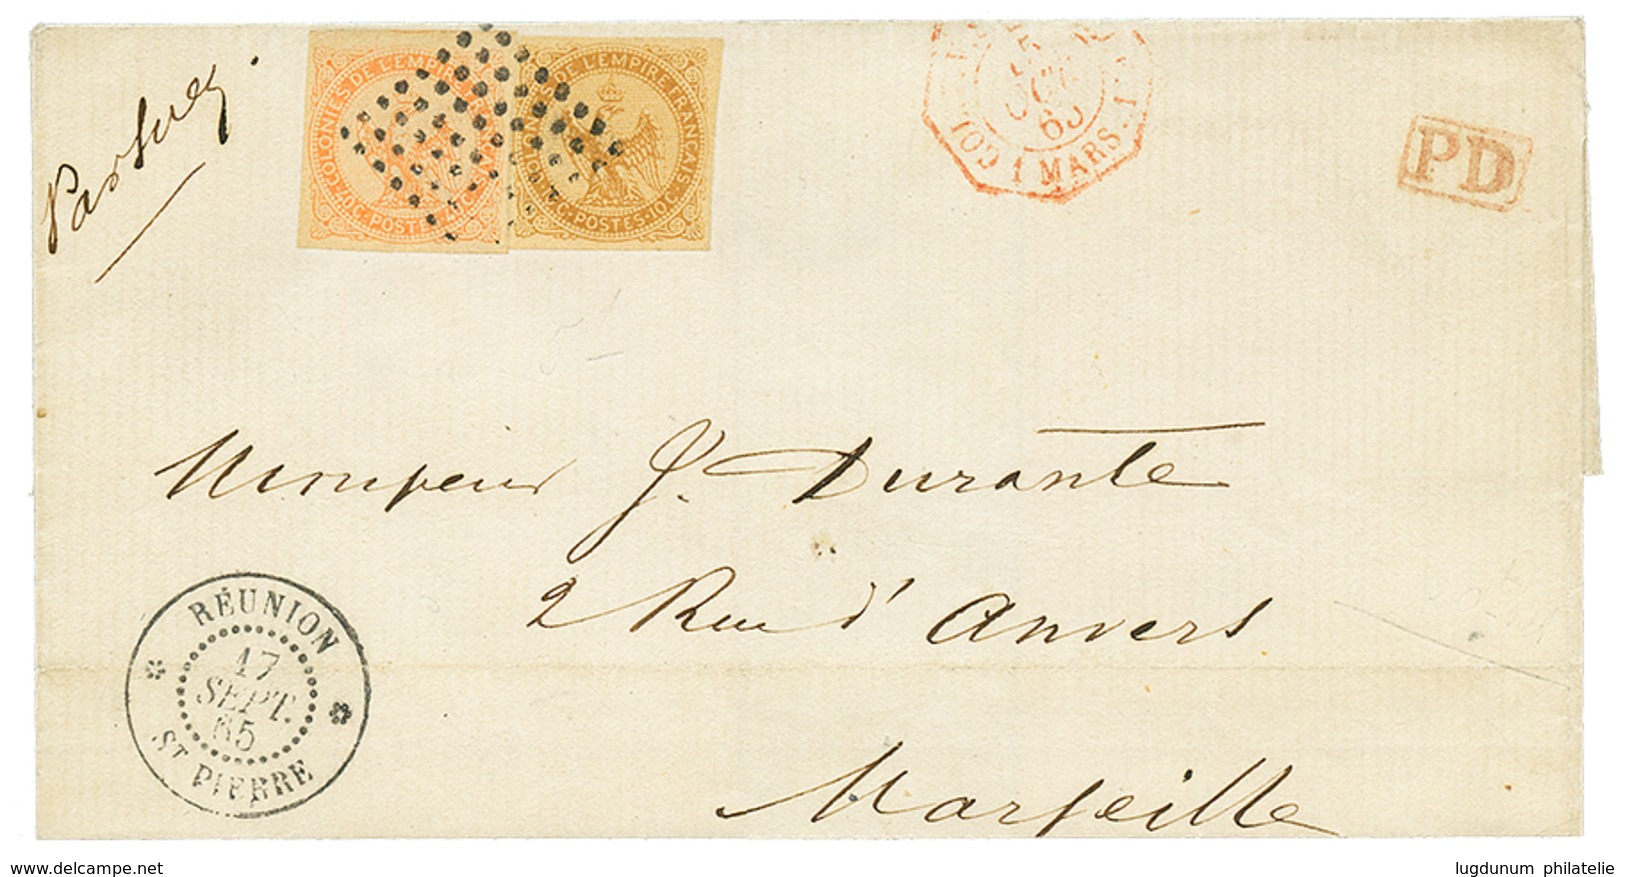 Par Suez.
COLONIES DE L'EMPIRE
40C. POSTES 40C
S DE L'EMPIRE FRANCAIS.
C. POSTES. 10C.
65
COL 1 MARS. 1
PD
Monsieur J. Durante
2 Rue d'Anvers
Marseille
RÉUNION
17
SEPT.
65
ST PIERRE
www.delcampe.net
lugdunum philatelie